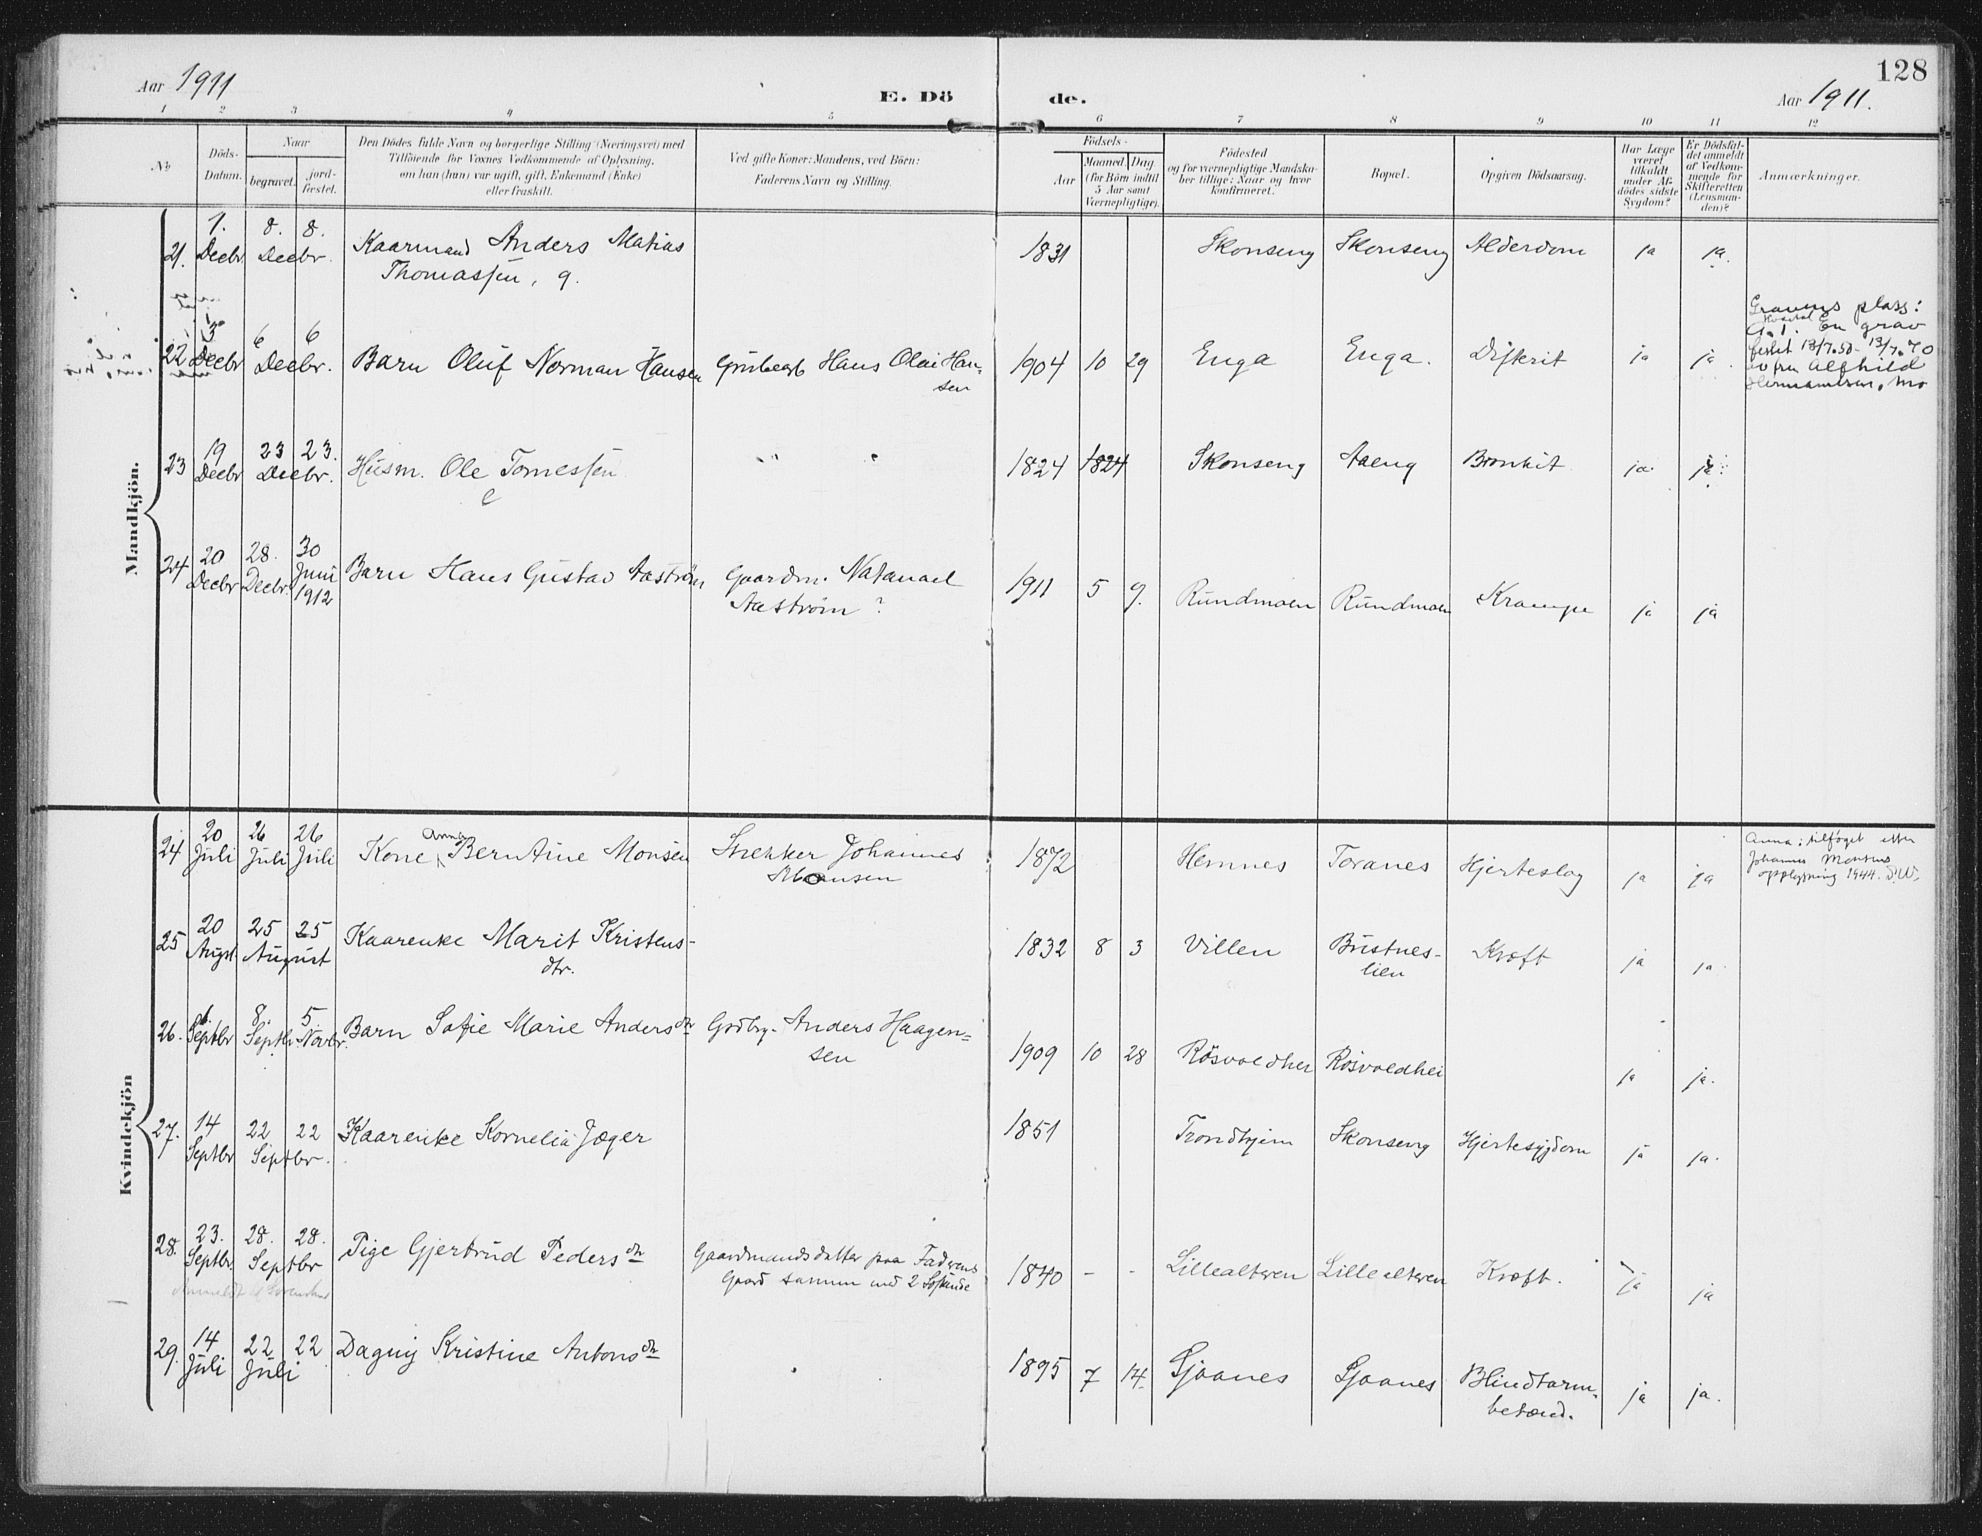 128
Aar 1911
E. Dö
de.
Aar 1911.
1 2 3 4 5 6 7 8 9 10 11 12
No
Döds-
Datum.
Naar
begravet.
jord-
fæstet.
Den Dödes fulde Navn og borgerlige Stilling (Næringsvei) med
Tilföiende for Voxnes Vedkommende af Oplysning,
om han (hun) var ugift, gift, Enkemand (Enke)
eller fraskilt.
Ved gifte Koner: Mandens, ved Börn:
Faderens Navn og Stilling.
Födsels-
Aar
Maaned. Dag.
(for Börn indtil
5 Aar samt
Værnepligtige).
Födested
og for værnepligtige Mandskа-
ber tillige: Naar og hvor
konfirmeret.
Bopæl.
Opgiven Dödsaarsag.
Har Læge
været
tilkaldt
under Af-
dödes sidste
Sygdom?
Er Dödsfal-
det anmeldt
af Vedkom-
mende for
Skifteretten
(Lensman-
den)?
Anmærkninger.
Mandkjön.
21. 1. Decbr 8. 8. Decbr. Kaarmand Anders Matias 1831 Skonseng Skonseng Alderdom ja ja.
Thomassen, g.
22 3 Decbr 6 6 Decbr. Barn Oluf Norman Hansen Hans Olai Han- 1904 10 29 Enga Enga. Difterit ja ja.
sen
Gravens plass:
En grav
festet 13/7.50- 13/7.70
av fru Alfhild
Hermansen, Mo
23 19 Decbr 23 23. Decbr. Husm. Ole Tomessen 1824 1824 Skonseng Aaeng Bronkit ja. ja.
e
24 20 Decbr 28. Decbr. 30 Juni 1912 Barn Hans Gustav Aaström Gaardm. Natanael 1911 5 9. Rundmoen Rundmoen Krampe ja ja
Aaström?
Kvindekjön
24 20 Juli 26 Juli 26 Juli Kone Anna Berntine Monsen Strekker Johannes 1872 Hemnes Toranes Hjerteslag ja ja
Monsen
Anna: tilføyet etter
Johannes Monsens
opplysning 1944.
25 20 Augst 25 25 August Kaarenke Marit Kristens- 1832 8 3 Villen Bustnes- Kræft ja ja.
dtr. lien
26. 6 Septbr 8. Septbr 5. Novbr. Barn Sofie Marie Andersdtr Gdbr. Anders Haagen-
sen 1909 10 28 Rösvoldhei Rösvoldhei ja ja.
27. 14 Septbr 22 22 Septbr. Kaarenke Kornelia Jæger 1851 Trondhjem Skonseng Hjertesygdom ja ja.
28. 23. Septbr 28. 28. Septbr Pige Gjertrud Pedersdtr Gaardmandsdatter paa Faderens
Gaard sammen med 2 Söskende 1840 - - Lillealteren Lillealteren Kræft. ja ja
29. 14 Juli 22 22 Juli Dagny Kristine Antonsdtr 1895 7 14. Sjaanes Sjaanes Blindtarm-
betænd. ja ja.